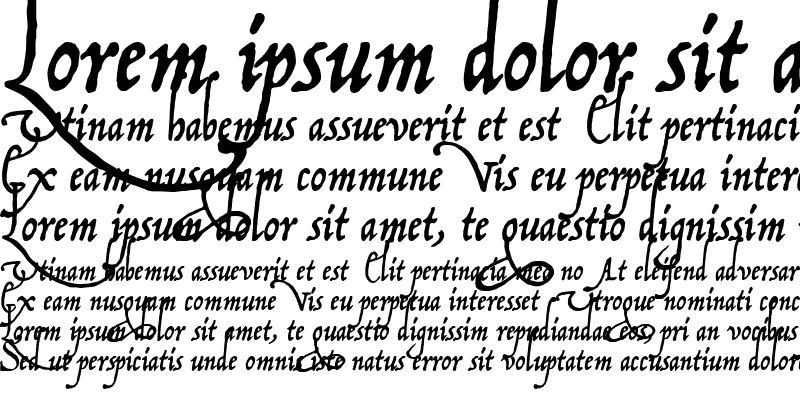 Lorem ipsum dolor sit a
Utinam habemus assueverit et est Elit pertinaci
Ex eam nusquam commune Vis eu perpetua inter
Lorem ipsum dolor sit amet, te quaestio dignissim
Utinam habemus assueverit et est Elit pertinacia meo no At eleifend adversar
Ex eam nusquam commune Vis eu perpetua interesset Utroque nominati conc
Lorem ipsum dolor sit amet, te quaestio dignissim repudiandae eos, pri an vocibus
Sed ut perspiciatis unde omnis iste natus error sit voluptatem accusantium dolore